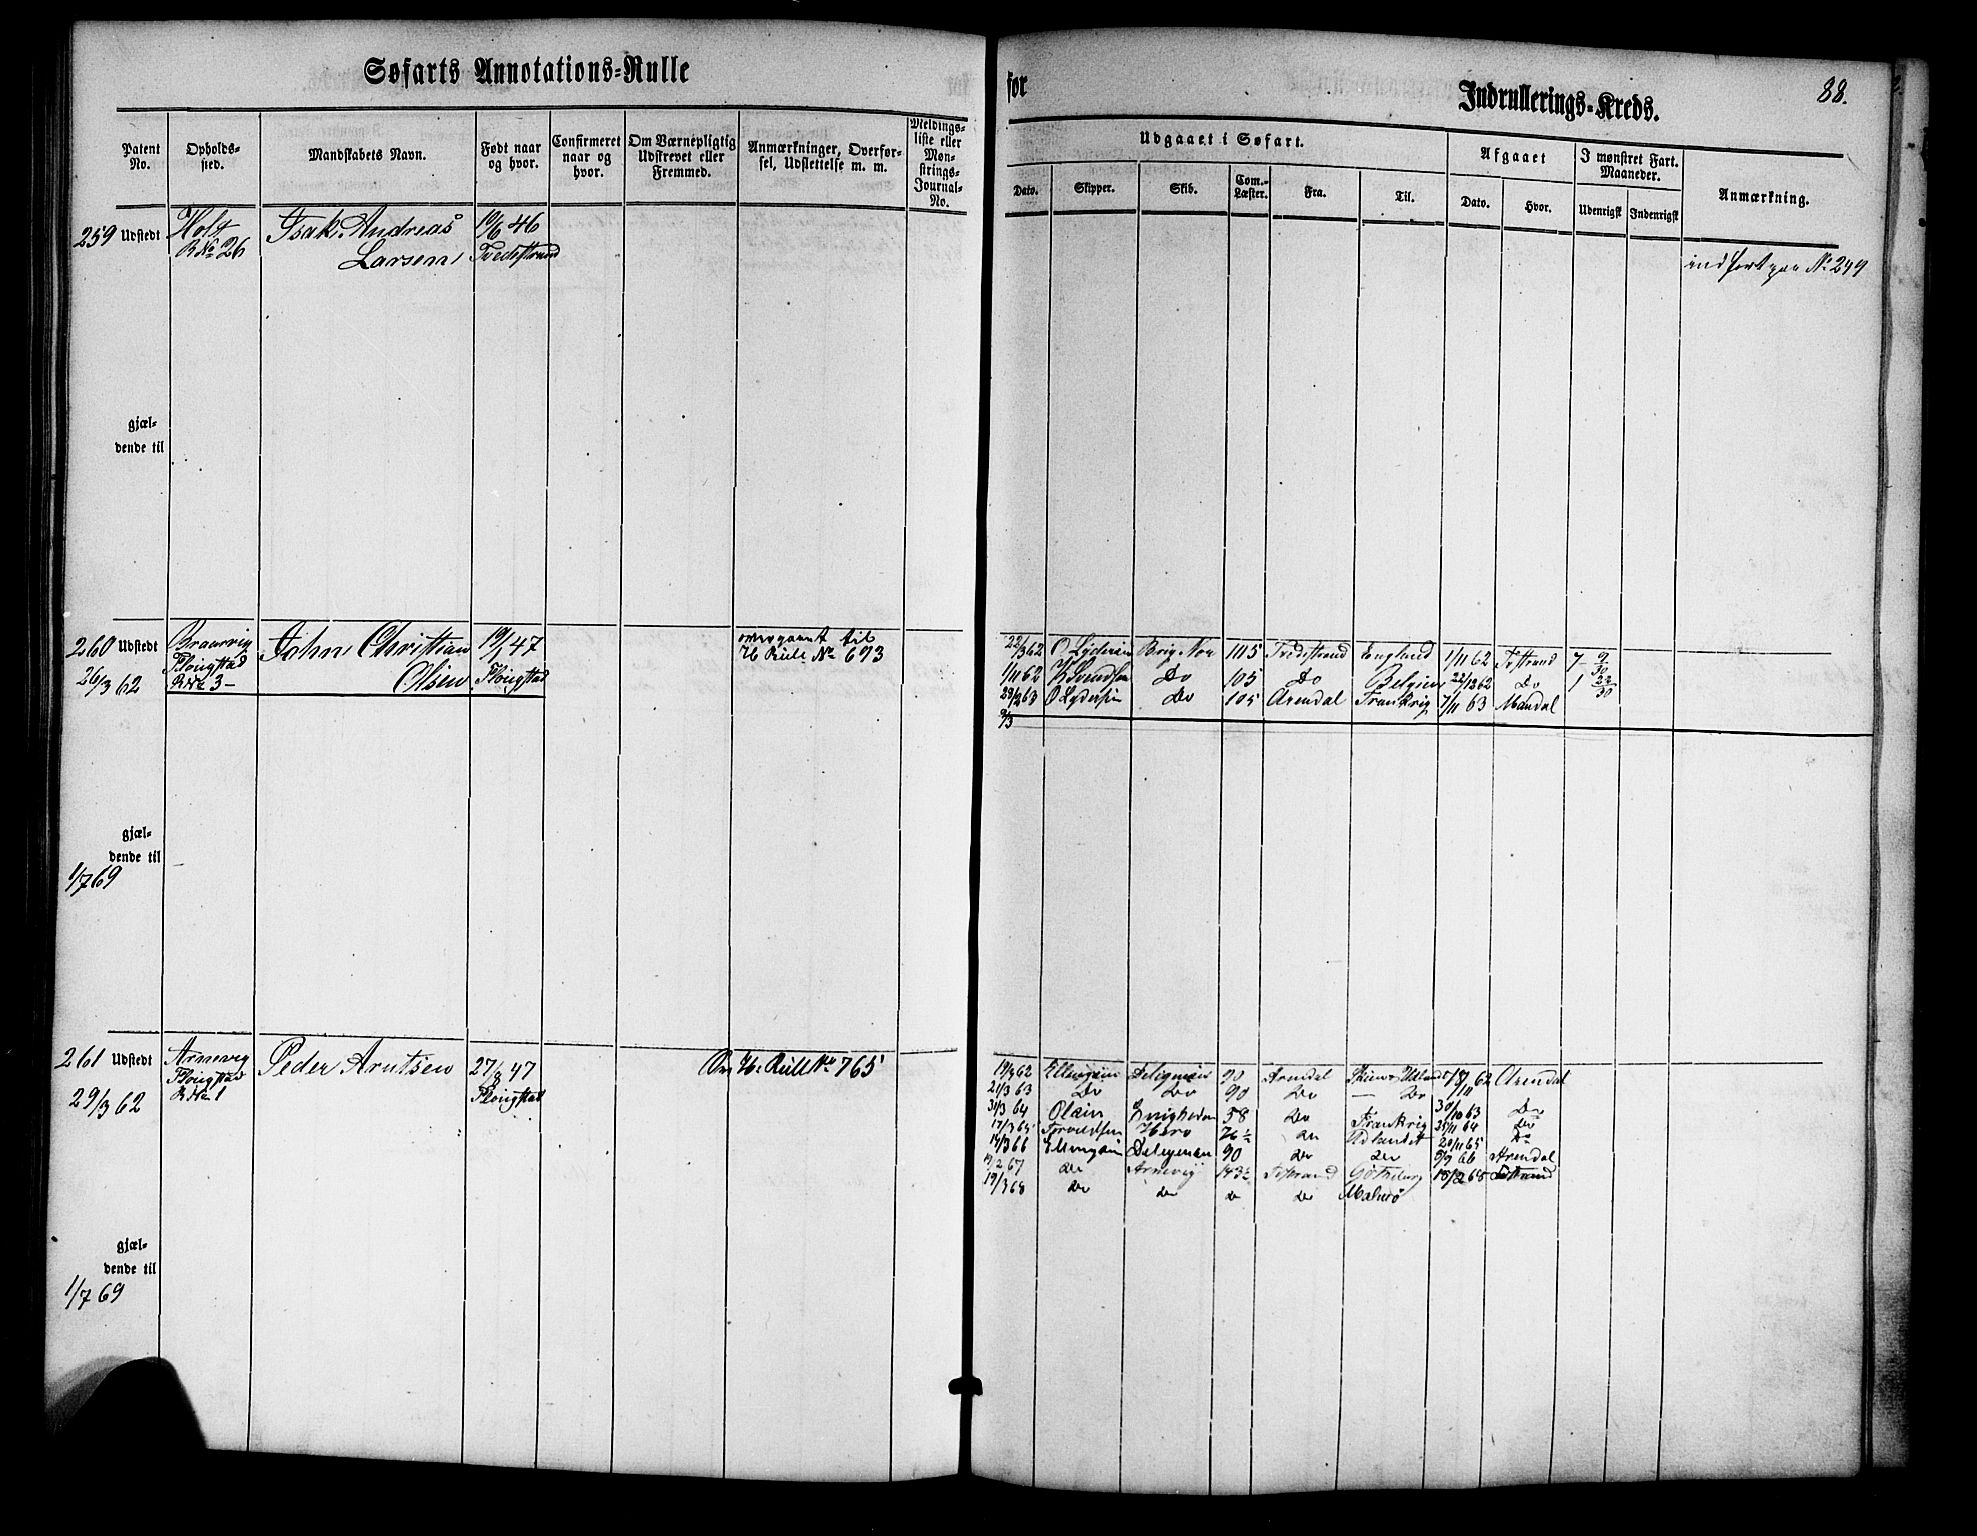 Søfarts Annotations-Rulle
Patent No.
Opholds-sted.
Mandskabets Navn.
Født naar og hvor.
Confirmeret naar og hvor.
Om Værnepligtig Udskrevet eller Fremmed.
Anmærkninger, Overførsel, Udslettelse m. m.
Meldings-liste eller Mønstrings-Journal-No.
259 Udstedt
Holt
R No 26
Isak Andreas
Larsen
19/6 46
Tvedestrand
gjæl-
dende til
260 Udstedt
26/3 62
Flougstad
R No 3
John Christian
Olsen
19/1 47
Flougstad
overgaaet til
H. Rull No 693
gjæl-
dende til
1/7 69
261 Udstedt
29/3 62
Arnevig
Flougstad
R No 1
Peder Arntsen
27/8 47
Flougstad
H. Rull No 765
gjæl-
dende til
1/7 69
for
Indrullerings-Kreds.
88.
Udgaaet i Søfart.
Afgaaet
I mønstret Fart. Maaneder.
Anmærkning.
Dato.
Skipper.
Skib.
Com.-Læster.
Fra.
Til.
Dato.
Hvor.
Udenrigsk
Indenrigsk
indført paa No 244
22/3 62 O Lydersen Brig Nor 105 Tvedestrand England 1/11 62 Tstrand 7 9/30
1/11 62 K Svendsen Do 105 Do Belgien 22/12 62 Do 1 22/30
23/2 63 O Lydersen Do 105 Arendal Frankrig 7/11 63 Mandal
9/3
19/3 62 Ellingsen Deligensen 90 Arendal 62 Arendal
21/3 63 Do Do 90 Do — Do 30/10 63 Do
31/3 64 Enigheden 58 Do Frankrig 25/11 64 Do
17/3 65 Torvildsen Hero 76½ do Udlandet 20/11 65 Do
14/3 66 Ellingsen 90 do do 9/9 66 Arendal
19/2 67 do Arnevig 143½ Tstrand Gøtheborg 18/2 68 Tstrand
19/3 68 do do do do Malmø